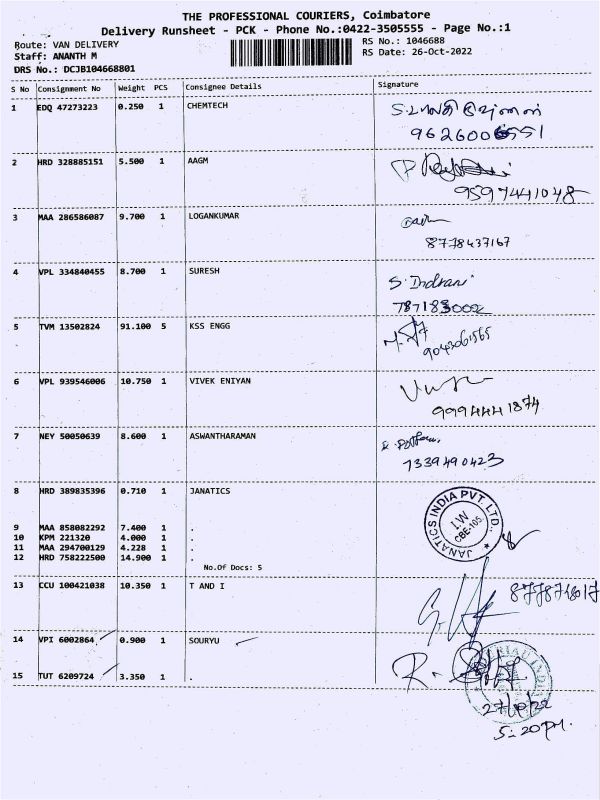 THE PROFESSIONAL COURIERS, Coimbatore
Delivery Runsheet - PCK - Phone No.:0422-3505555 - Page No.:1
Route: VAN DELIVERY
RS No.: 1046688
Staff: ANANTH M
RS Date: 26-Oct-2022
DRS No.: DCJB104668801
S No Consignment No Weight PCS Consignee Details Signature
1 EDQ 47273223 0.250 1 CHEMTECH
9626006551
2 HRD 328885151 5.500 1 AAGM
9597441048
3 MAA 286586087 9.700 1 LOGANKUMAR
8778437167
4 VPL 334840455 8.700 1 SURESH
S. Indrani
787183002
5 TVM 13502824 91.100 5 KSS ENGG
9043061565
6 VPL 939546006 10.750 1 VIVEK ENIYAN
9994441874
7 NEY 50050639 8.600 1 ASWANTHARAMAN
7339490423
8 HRD 389835396 0.710 1 JANATICS
JANATICS INDIA PVT. LTD.,
I.W
CBE-105
9 MAA 858082292 7.400 1 .
10 KPM 221320 4.000 1 .
11 MAA 294700129 4.228 1 .
12 HRD 758222500 14.900 1 .
No.Of Docs: 5
13 CCU 100421038 10.350 1 T AND I
14 VPI 6002864 0.900 1 SOURYU
15 TUT 6209724 3.350 1 .
5.20pm.